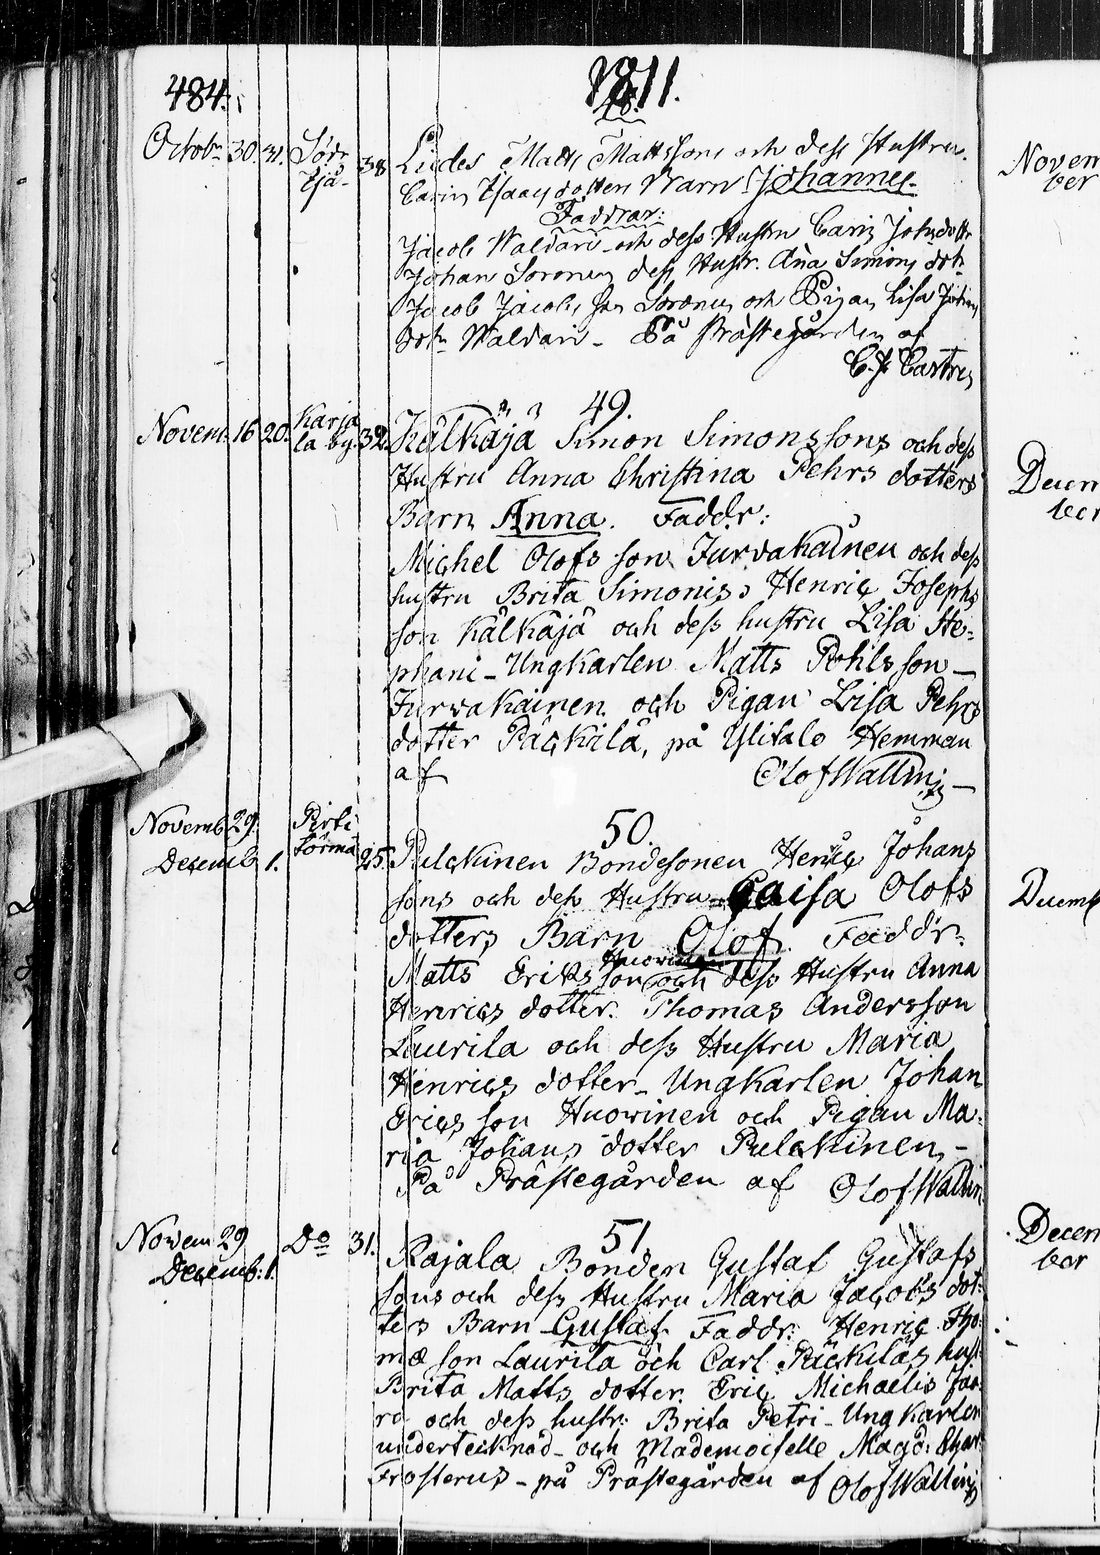 484.
1811.
48.
Octob. 30. 31. 38
Matts Mattssons och dess Hustru
Carin Barn Johannes.
Faddrar:
Jacob Waldari och dess Hustru Carin Johsdottr
Johan Soronen dess Hustr. Ana Simons dotr
Jacob Jacobs son Soronen och Pigan Lisa Johans
dotr Waldari - På Prästegården af
C. J. Castren
49.
Novem. 16 20. Karja
la by. 32. Kälkäjä Simon Simonssons och dess
Hustru Anna Christina Pehrs dotters
Barn Anna. Faddr:
Michel Olofs son Jurvakainen och dess
hustru Brita Simonis, Henric Josephs
son Kälkäjä och dess hustru Lisa Ste-
phani - Ungkarlen Matts Pohls son -
Jurvakainen och Pigan Lisa Pehrs
dotter Päckilä, på Ylitalo Hemman
af Olof Wallin
50.
Novemb 29. Pirti
Decemb. 1. törmä 25. Pulckinen Bondesonen Henric Johans
sons och dess Hustru Caisa Olofs
dotters Barn Olof. Faddr:
Huovinen
Matts Eriks son och dess Hustru Anna
Henrics dotter. Thomas Andersson
Laurila och dess Hustru Maria
Henrics dotter - Ungkarlen Johan
Erics son Huovinen och Pigan Ma-
ria Johans dotter Pulckinen -
På Prästegården af Olof Wallin
51.
Novem 29 Do 31. Rajala Bonden Gustaf Gustafs
Decemb: 1. sons och dess Hustru Maria Jacobs dot-
ters Barn Gustaf. Faddr: Henric Tho-
mæ son Laurila och Carl Päckiläs hust:
Brita Matts dotter. Eric Michaelis
och dess hustr: Brita Petri - Ungkarlen
undertecknad - och Mademoiselle Magd:
Frosterus - på Prästegården af Olof Wallin
Novem
ber
Decem
ber
Decemb
Decem
ber